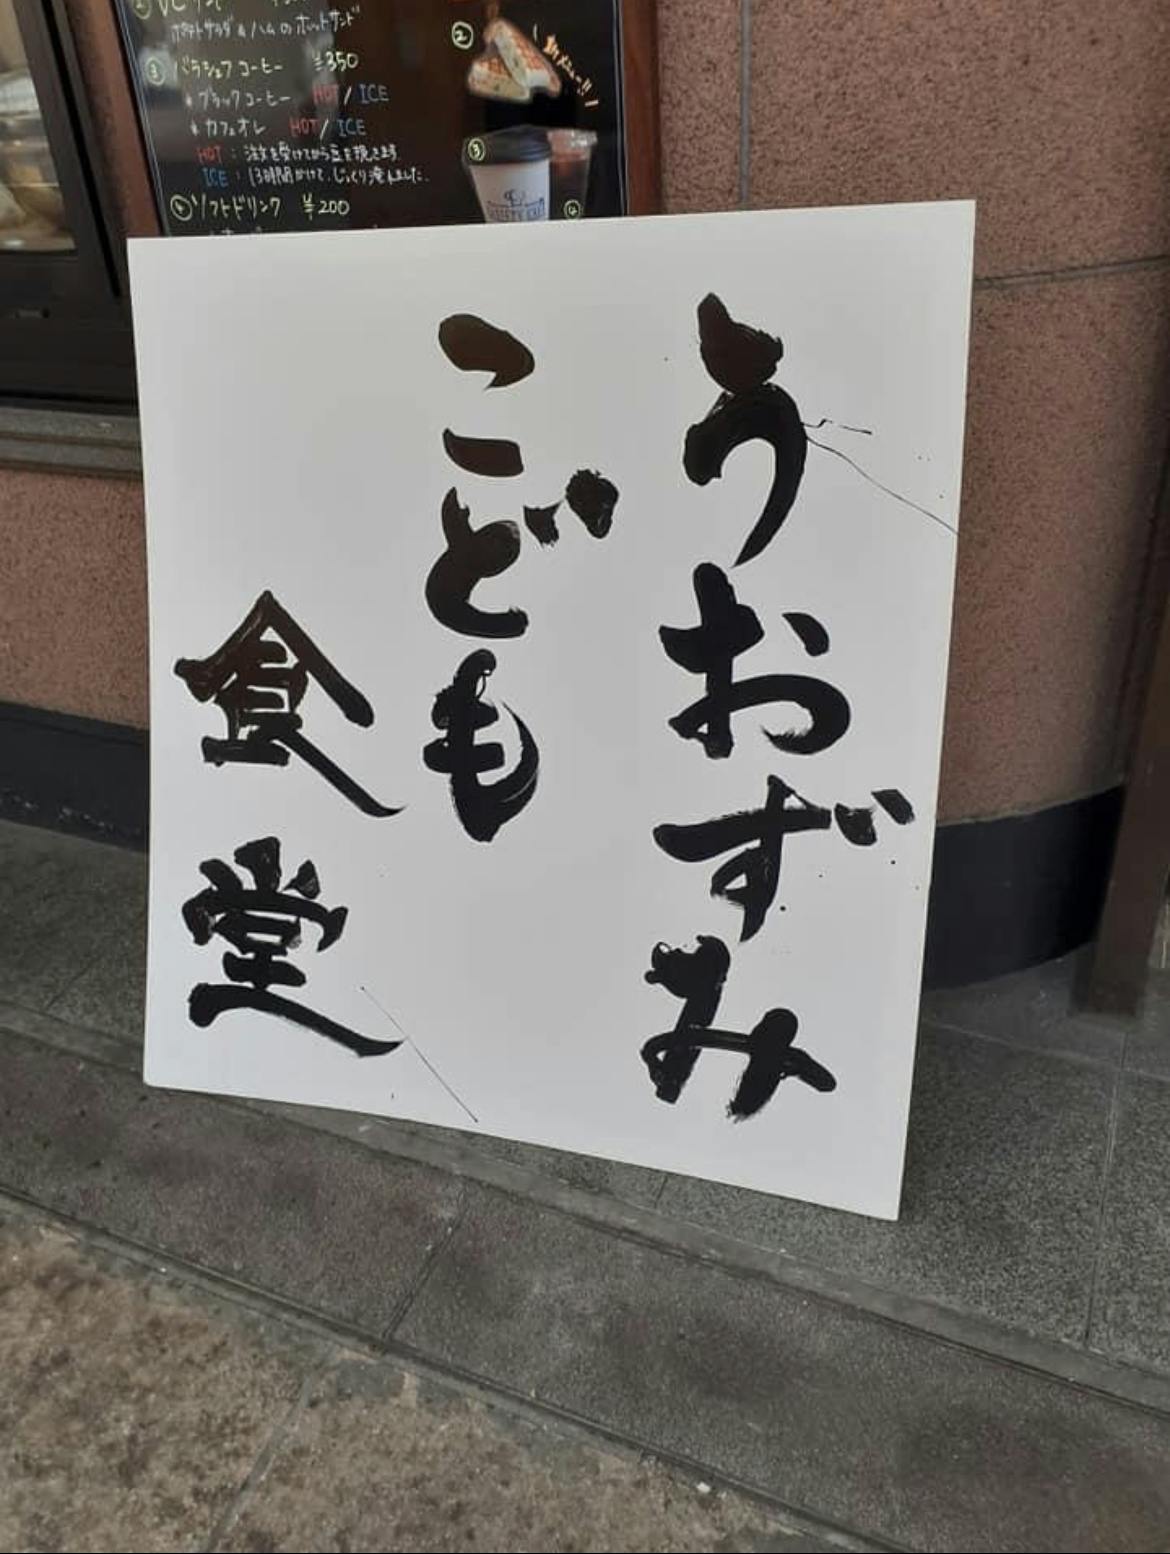 ポテトサラダ&ハムのホットサンド
③ バラシェフコーヒー ¥350
ブラックコーヒー HOT / ICE
カフェオレ HOT / ICE
HOT : 注文を受けてから豆を挽きます
ICE : 13時間かけて、じっくり淹れました。
④ ソフトドリンク ¥200
②
新メニュー!!
③
④
うおずみ
こども
食堂